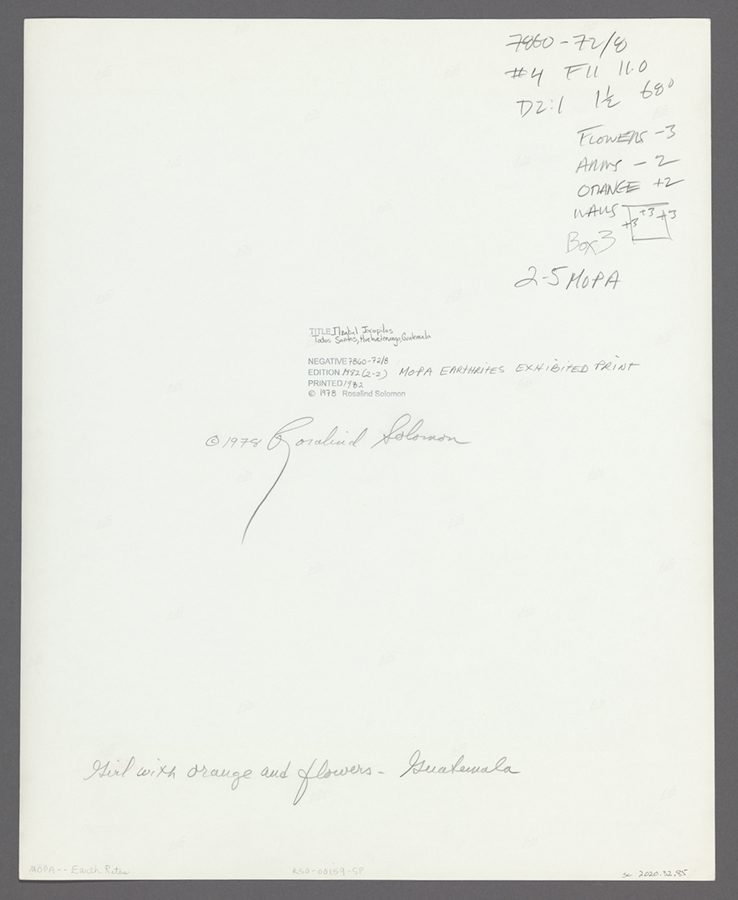 7860-72/8
#4 F11 11.0
D2:1 1½ 68°
FLOWERS -3
ARMS - 2
ORANGE +2
WALLS +3 +3 +3
Box 3
2-5 MOPA
TITLE
Todos Santos, Huehuetenango, Guatemala
NEGATIVE 7860-72/8
EDITION 1982 (2-2) MOPA EARTHRITES EXHIBITED PRINT
PRINTED 1982
© 1978 Rosalind Solomon
© 1978 Rosalind Solomon
Girl with orange and flowers - Guatemala
MOPA -- Earth Rites
RSO-00159-SP
2020.32.85